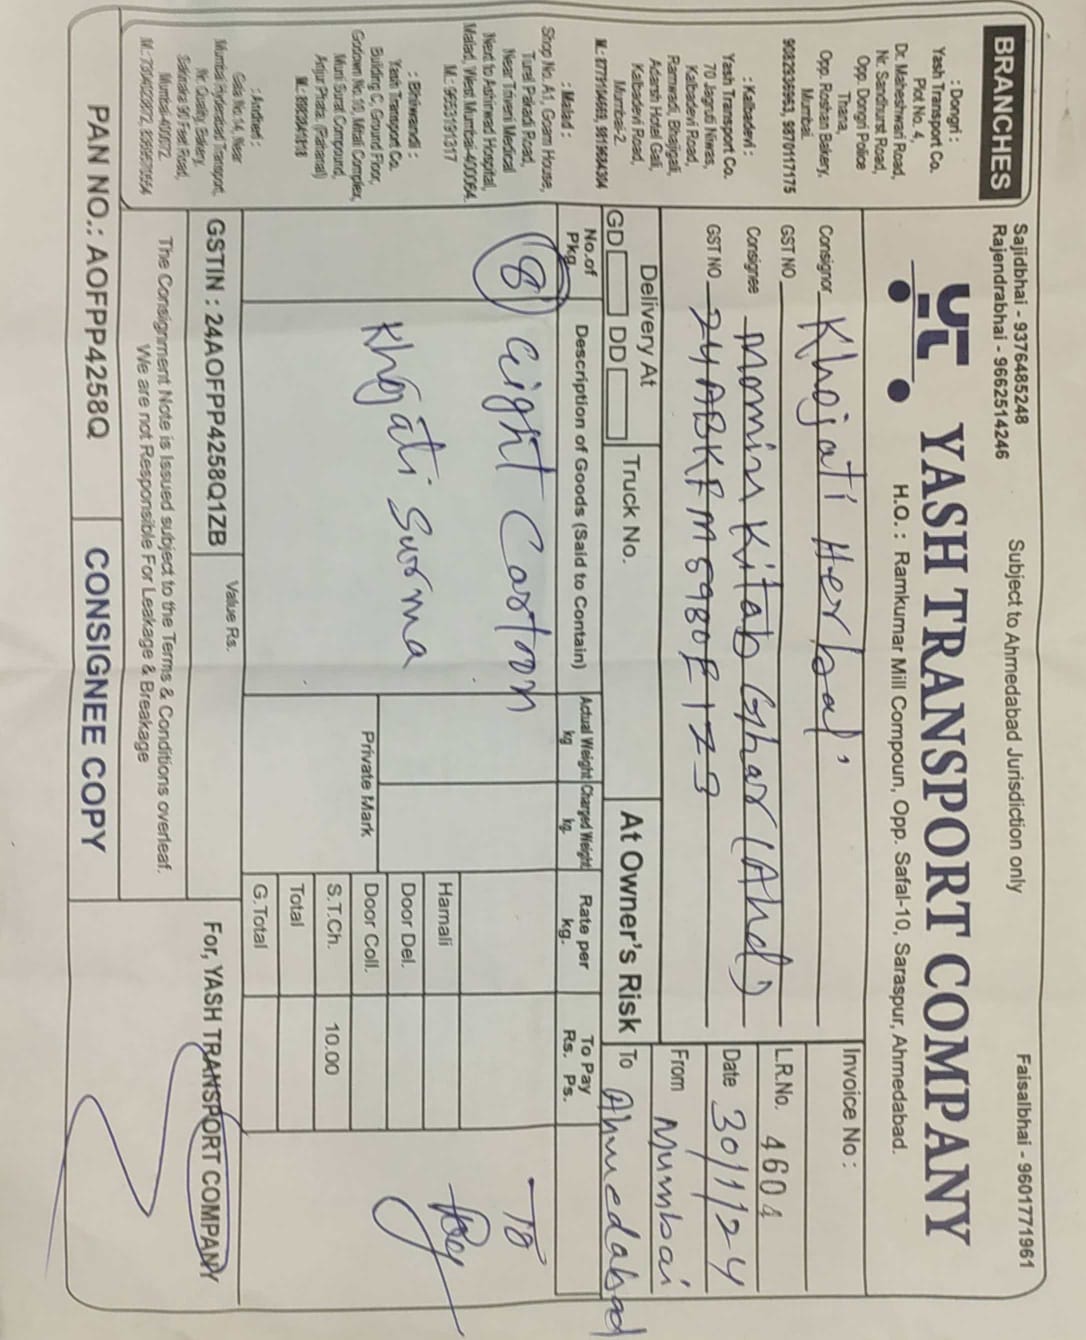 Sajidbhai - 9376485248
Rajendrabhai - 9662514246
Subject to Ahmedabad Jurisdiction only
Faisalbhai - 9601771961
YASH TRANSPORT COMPANY
H.O. : Ramkumar Mill Compoun, Opp. Safal-10, Saraspur, Ahmedabad.
BRANCHES
: Dongri :
Yash Transport Co.
Plot No. 4,
Dr. Maheshwari Road,
Nr. Sandhurst Road,
Opp. Dongri Police
Thana,
Opp. Roshan Bakery,
Mumbai.
9082936963, 9870117175
: Kalbadevi :
Yash Transport Co.
70 Jagruti Niwas,
Kalbadevi Road,
Ramwadi, Bhajigali,
Adarsh Hotel Gali,
Kalbadevi Road,
Mumbai-2.
: Malad :
Shop No. A1, Goam House,
Turel Pakhadi Road,
Near Triveni Medical
Next to Ashirwad Hospital,
Malad, West Mumbai-400064.
M.: 9653191317
: Bhiwandi :
Yash Transport Co.
Building C, Ground Floor,
Godown No. 10, Mitali Complex,
Muni Surat Compound,
Anjur Phata. (Rahanal)
: Andheri :
Gala No. 14, Near
Mumbai Hyderabad Transport,
Nr. Quality Bakery,
Sakinaka 90 Feet Road,
Mumbai-400072.
Consignor Khojati Herbal
GST NO.
Consignee Momin Kitab Ghar (Ahd)
GST NO. 24ABKFM5980E1Z3
Invoice No :
L.R.No. 4604
Date 30/11/24
From Mumbai
To Ahmedabad
Delivery At
GD DD
Truck No.
At Owner's Risk
No.of Pkg.
Description of Goods (Said to Contain)
Actual Weight kg
Charged Weight kg.
Rate per kg.
To Pay Rs. Ps.
8 Eight Cartoon
Khojati Surma
To Pay
Private Mark
Hamali
Door Del.
Door Coll.
S.T.Ch. 10.00
Total
G.Total
GSTIN : 24AOFPP4258Q1ZB
Value Rs.
The Consignment Note is Issued subject to the Terms & Conditions overleaf.
We are not Responsible For Leakage & Breakage
For, YASH TRANSPORT COMPANY
PAN NO.: AOFPP4258Q
CONSIGNEE COPY